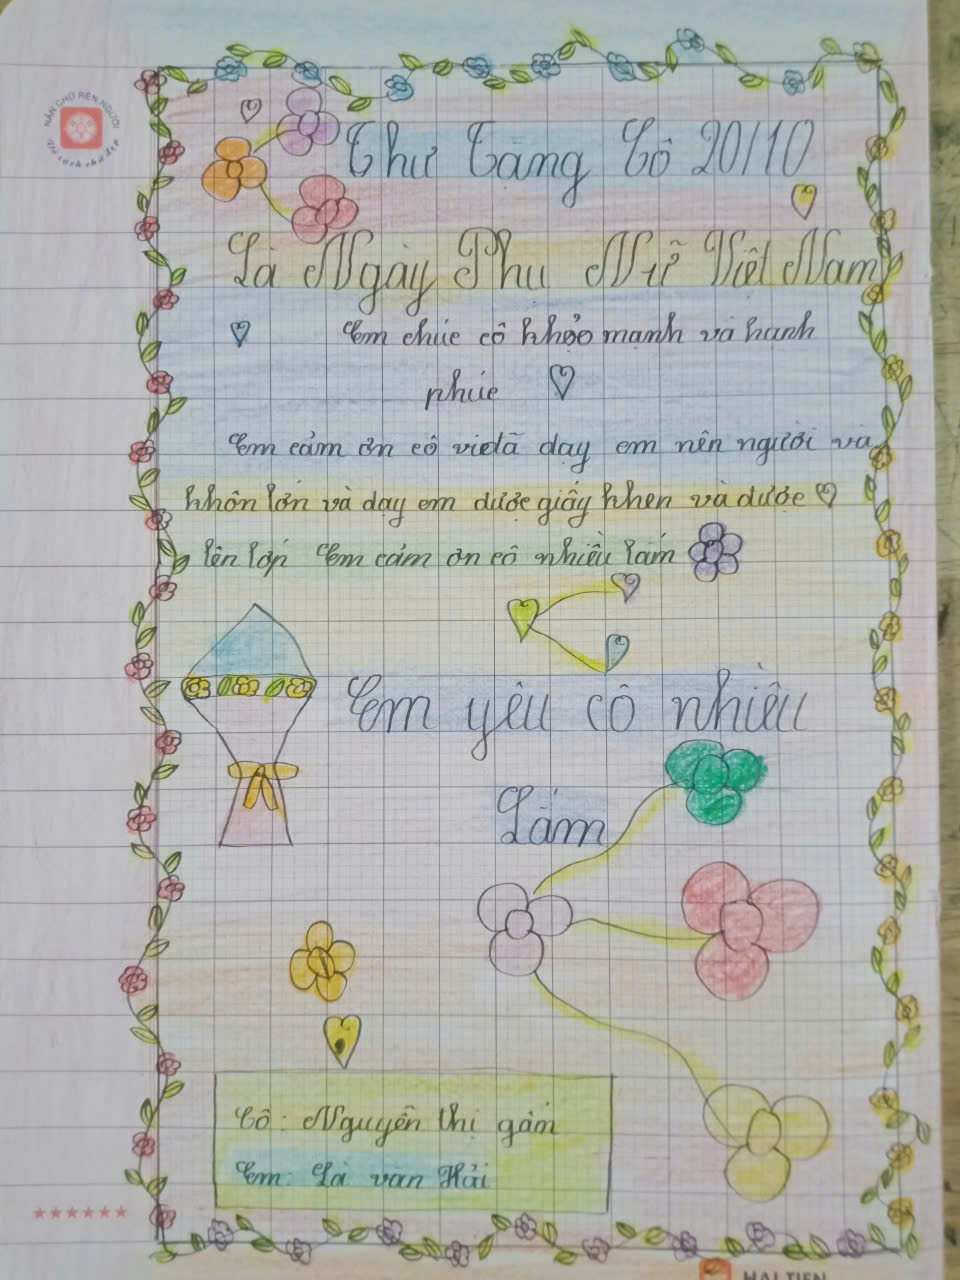 NẮN CHỮ RÈN NGƯỜI
Thư Tặng Cô 20/10
Là Ngày Phụ Nữ Việt Nam
Em chúc cô khỏe mạnh và hanh
phúc
Em cảm ơn cô vì đã dạy em nên người và
khôn lớn và dạy em được giấy khen và được
lên lớp Em cảm ơn cô nhiều lắm
Em yêu cô nhiều
Lắm
Cô: Nguyễn thị gấm
Em: Là văn Hải
HẢI TIẾN